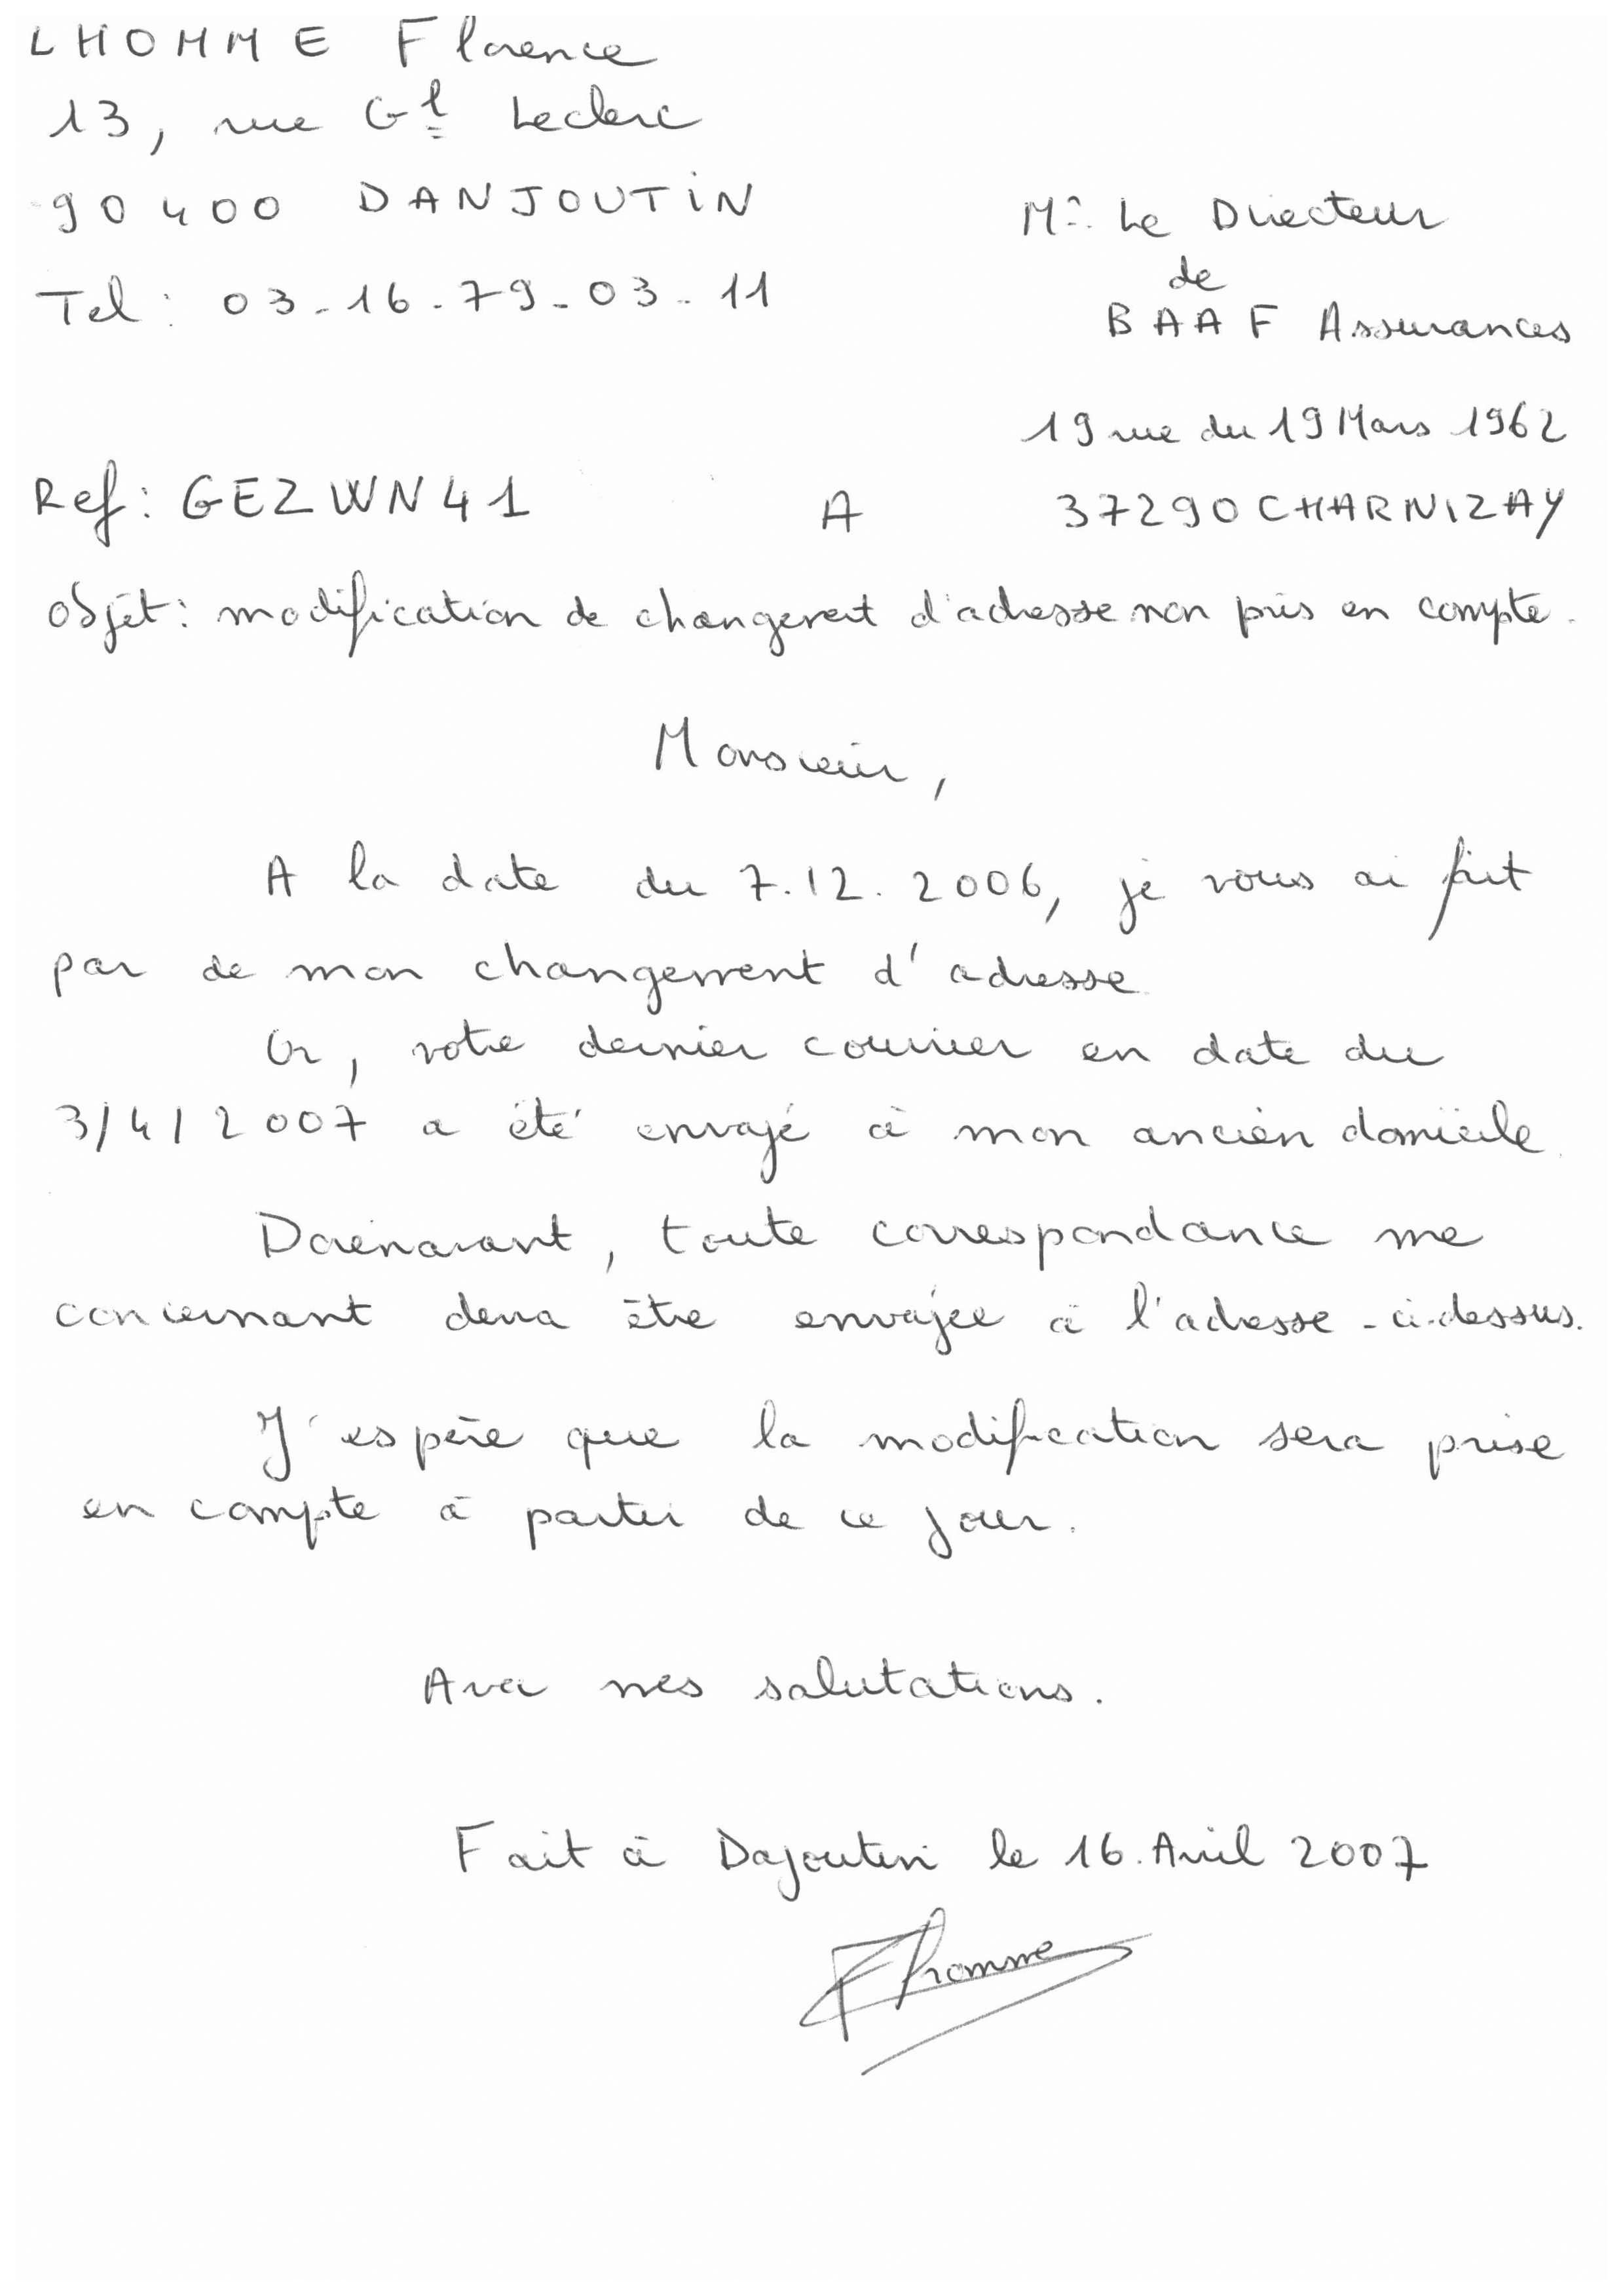 LHOMME Florence
13, rue Gl Leclerc
90400 DANJOUTIN
Tel : 03-16-79-03-11
Mr. Le Directeur
de
BAAF Assurances
19 rue du 19 Mars 1962
Ref : GEZWN41 A 37290 CHARNIZAY
objet : modification de changement d'adresse non pris en compte.
Monsieur,
A la date du 7.12.2006, je vous ai fait
par de mon changement d'adresse
Or, votre dernier courrier en date du
3/4/2007 a été envoyé à mon ancien domicile.
Dorénavant, toute correspondance me
concernant devra être envoyée à l'adresse -ci-dessus.
J'espère que la modification sera prise
en compte à partir de ce jour.
Avec mes salutations.
Fait à Dajoutin le 16 Avril 2007
Flhomme